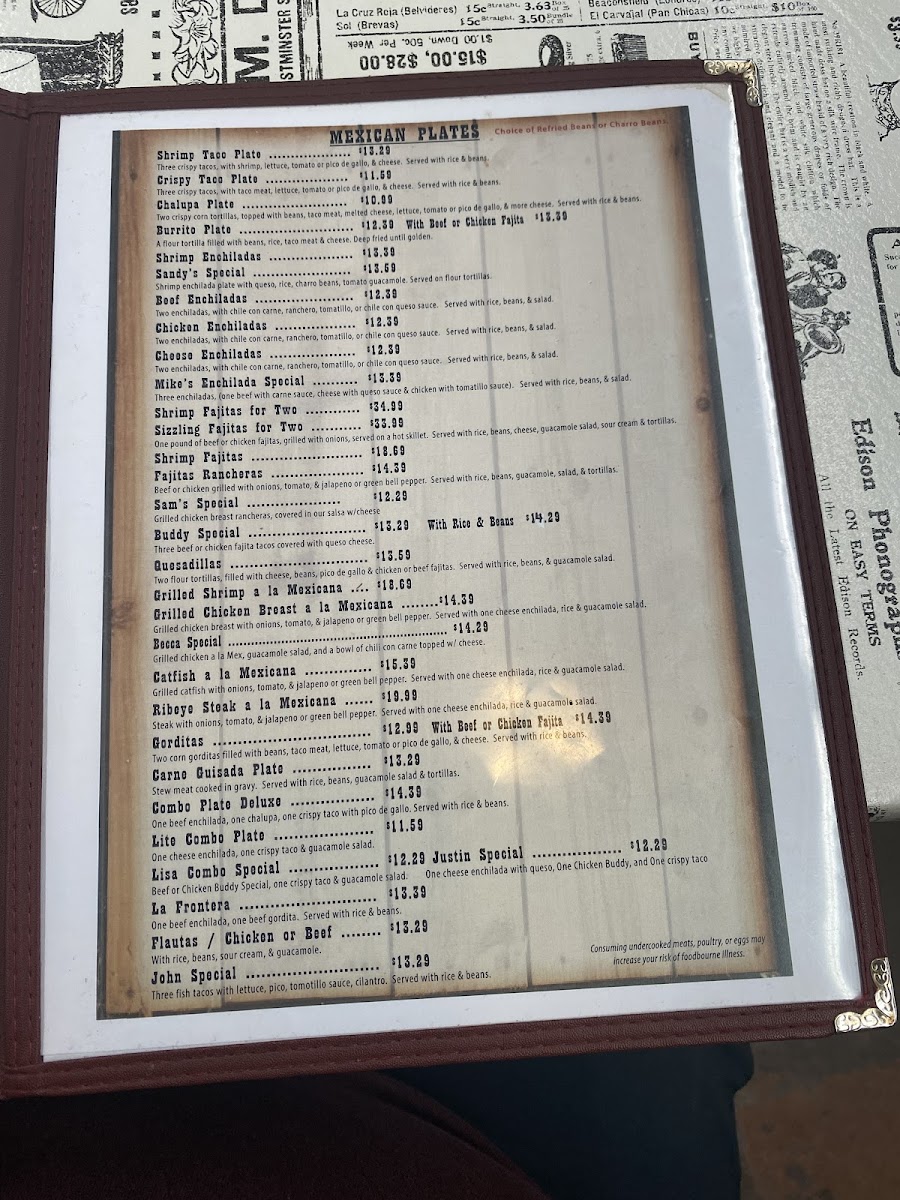 La Cruz Roja (Belvideres) 15c Straight. 3.63 Box of 25
Sol (Brevas) 15c Straight. 3.50 Bundle
El Carvajal (Pan Chicas) 10c Straight. $10
$1.00 Down, 50c. Per Week
$15.00, $28.00
MEXICAN PLATES Choice of Refried Beans or Charro Beans.
Shrimp Taco Plate .................. $13.29
Three crispy tacos, with shrimp, lettuce, tomato or pico de gallo, & cheese. Served with rice & beans.
Crispy Taco Plate .................. $11.59
Three crispy tacos, with taco meat, lettuce, tomato or pico de gallo, & cheese. Served with rice & beans.
Chalupa Plate ........................ $10.99
Two crispy corn tortillas, topped with beans, taco meat, melted cheese, lettuce, tomato or pico de gallo, & more cheese. Served with rice & beans.
Burrito Plate ......................... $12.39 With Beef or Chicken Fajita $13.39
A flour tortilla filled with beans, rice, taco meat & cheese. Deep fried until golden.
Shrimp Enchiladas .................. $13.39
Sandy's Special ..................... $13.59
Shrimp enchilada plate with queso, rice, charro beans, tomato guacamole. Served on flour tortillas.
Beef Enchiladas ..................... $12.39
Two enchiladas, with chile con carne, ranchero, tomatillo, or chile con queso sauce. Served with rice, beans, & salad.
Chicken Enchiladas ................. $12.39
Two enchiladas, with chile con carne, ranchero, tomatillo, or chile con queso sauce. Served with rice, beans, & salad.
Cheese Enchiladas .................. $12.39
Two enchiladas, with chile con carne, ranchero, tomatillo, or chile con queso sauce. Served with rice, beans, & salad.
Mike's Enchilada Special .......... $13.39
Three enchiladas, (one beef with carne sauce, cheese with queso sauce & chicken with tomatillo sauce). Served with rice, beans, & salad.
Shrimp Fajitas for Two ............ $34.99
Sizzling Fajitas for Two ........... $33.99
One pound of beef or chicken fajitas, grilled with onions, served on a hot skillet. Served with rice, beans, cheese, guacamole salad, sour cream & tortillas.
Shrimp Fajitas ........................ $18.69
Fajitas Rancheras .................... $14.39
Beef or chicken grilled with onions, tomato, & jalapeno or green bell pepper. Served with rice, beans, guacamole, salad, & tortillas.
Sam's Special .................... $12.29
Grilled chicken breast rancheras, covered in our salsa w/cheese
Buddy Special ......................... $13.29 With Rice & Beans $14.29
Three beef or chicken fajita tacos covered with queso cheese.
Quesadillas ............................. $13.59
Two flour tortillas, filled with cheese, beans, pico de gallo & chicken or beef fajitas. Served with rice, beans, & guacamole salad.
Grilled Shrimp a la Mexicana .... $18.69
Grilled Chicken Breast a la Mexicana ........$14.39
Grilled chicken breast with onions, tomato, & jalapeno or green bell pepper. Served with one cheese enchilada, rice & guacamole salad.
Becca Special ........................................................ $14.29
Grilled chicken a la Mex, guacamole salad, and a bowl of chili con carne topped w/ cheese.
Catfish a la Mexicana .............. $15.39
Grilled catfish with onions, tomato, & jalapeno or green bell pepper. Served with one cheese enchilada, rice & guacamole salad.
Ribeye Steak a la Mexicana ...... $19.99
Steak with onions, tomato, & jalapeno or green bell pepper. Served with one cheese enchilada, rice & guacamole salad.
Gorditas ................................. $12.99 With Beef or Chicken Fajita $14.39
Two corn gorditas filled with beans, taco meat, lettuce, tomato or pico de gallo, & cheese. Served with rice & beans.
Carne Guisada Plate ................ $13.29
Stew meat cooked in gravy. Served with rice, beans, guacamole salad & tortillas.
Combo Plate Deluxe ................. $14.39
One beef enchilada, one chalupa, one crispy taco with pico de gallo. Served with rice & beans.
Lite Combo Plate .................... $11.59
One cheese enchilada, one crispy taco & guacamole salad.
Lisa Combo Special .................. $12.29 Justin Special .................. $12.29
Beef or Chicken Buddy Special, one crispy taco & guacamole salad. One cheese enchilada with queso, One Chicken Buddy, and One crispy taco
La Frontera ............................ $13.39
One beef enchilada, one beef gordita. Served with rice & beans.
Flautas / Chicken or Beef ........ $13.29
With rice, beans, sour cream, & guacamole.
John Special ........................... $13.29
Three fish tacos with lettuce, pico, tomotillo sauce, cilantro. Served with rice & beans.
Consuming undercooked meats, poultry, or eggs may
increase your risk of foodbourne illness.
Edison
ON EASY TERMS
All the Latest Edison Records.